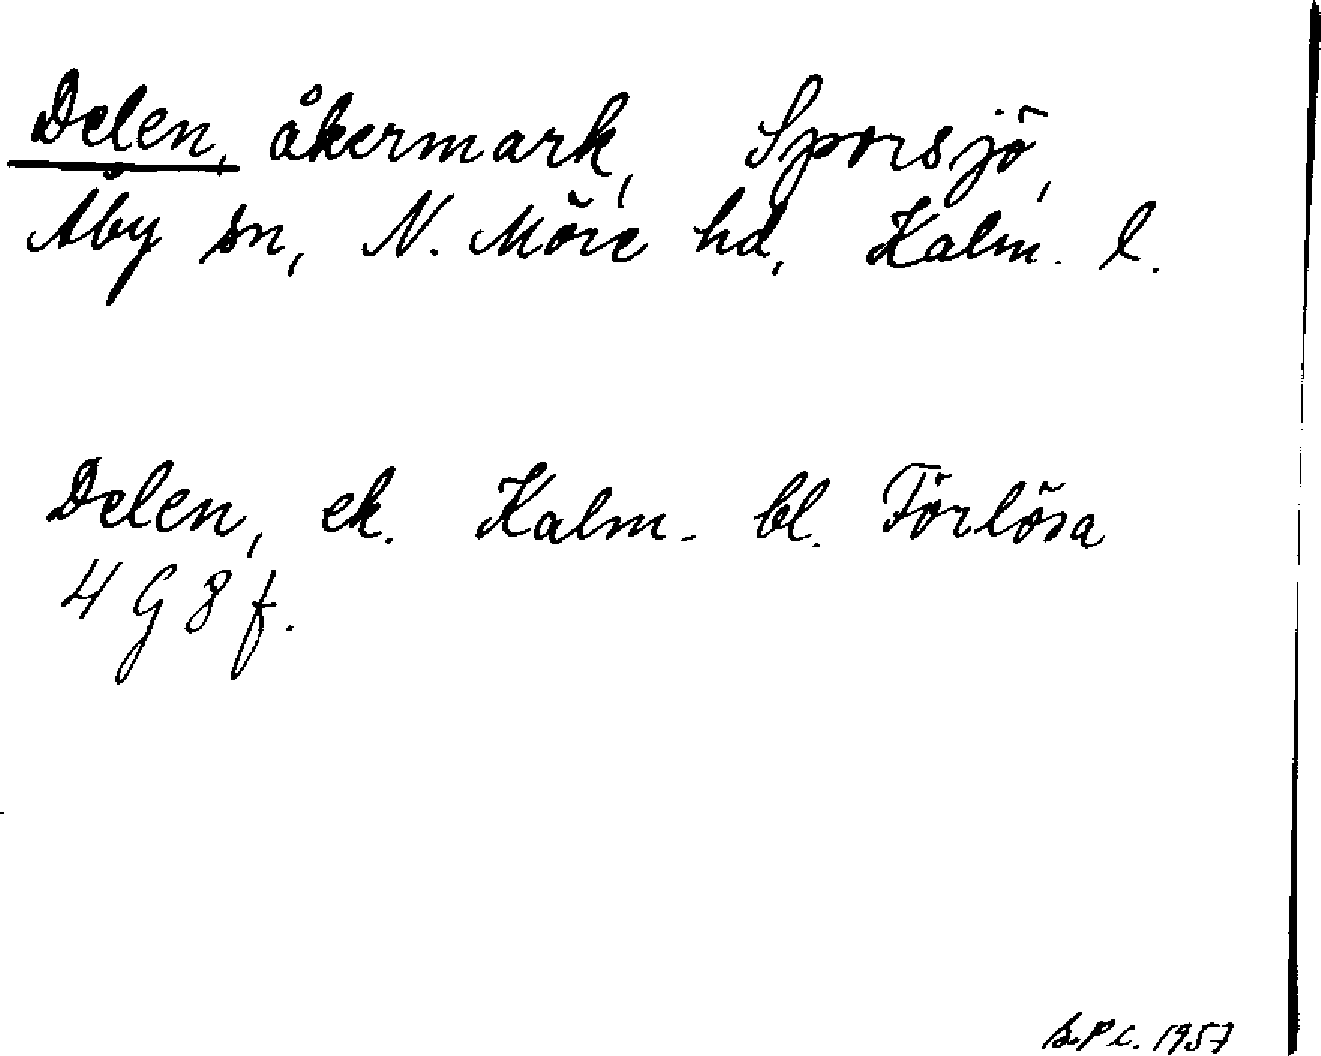 Delen, åkermark, Sporsjö,
Åby sn, N. Möre hd, Kalm. l.
Delen, ek. Kalm. bl. Förlösa
4 G 8 f.
S.P c. 1957